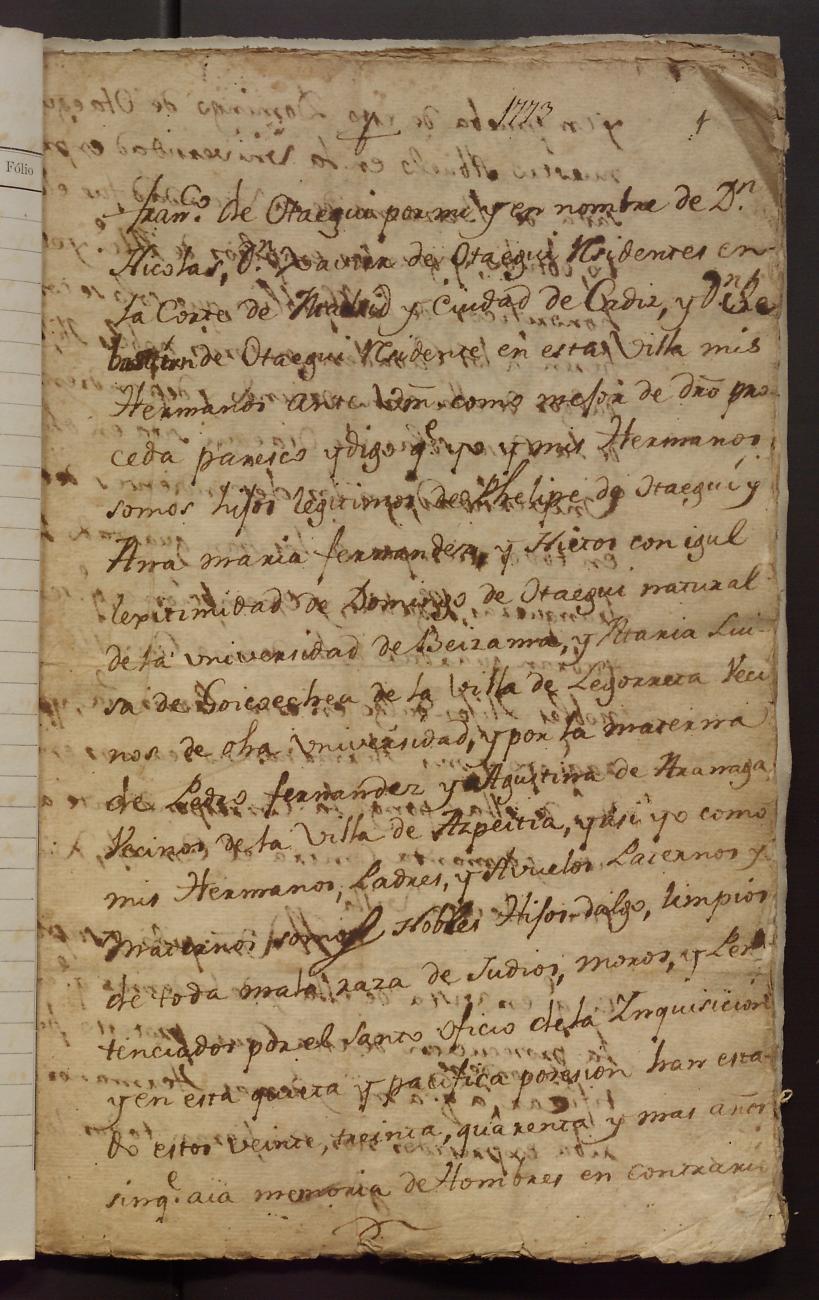 Fólio
1773
1
Fran.co de Otaegui por mi y en nombre de D.n
Nicolas, D.n Xavier de Otaegui Residentes en
la Corte de Madrid y Ciudad de Cadiz, y D.n Se
bastian de Otaegui Residente en esta Villa mis
Hermanos ante Vm como mejor de dro pro
ceda paresco y digo q.e yo y mis Hermanos
somos hijos legitimos de Phelipe de Otaegui y
Ana maria fernandez, y Nietos con igual
lexitimidad de Domingo de Otaegui natural
de la universidad de Beizama, y Maria Lui
sa de Goicoechea de la Villa de Legorreta Veci
nos de dha Universidad, y por la materna
de Pedro fernandez y Agustina de Aranaga
Vecinos de la Villa de Azpeitia, y asi yo como
mis Hermanos, Padres, y Avuelos Paternos y
Maternos somos Nobles Hijos-dalgo, limpios
de toda mala raza de Judios, moros, y Pen
tenciados por el Santo oficio de la Inquisicion
y en esta quieta y pacifica posesion han esta
do estos veinte, treinta, quarenta y mas años
sin q.e aia memoria de Hombres en contrario